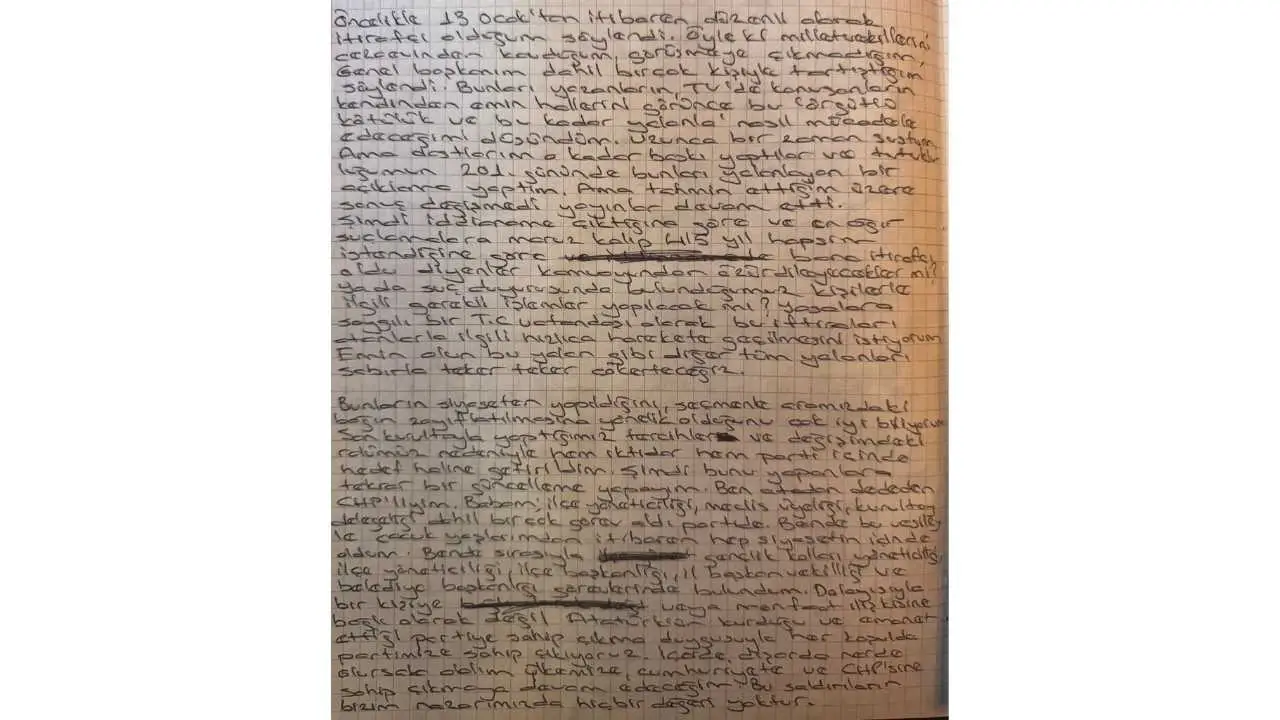 Öncelikle 13 Ocak'tan itibaren düzenli olarak
itirafçı olduğum söylendi. Öyle ki milletvekillerini
cezaevinden kovduğum, görüşmeye çıkmadığım,
Genel başkanım dahil birçok kişiyle tartıştığım
söylendi. Bunları yazanların, TV'de konuşanların
kendinden emin hallerini görünce bu "örgütlü
kötülük ve bu kadar yalanla" nasıl mücadele
edeceğimi düşündüm. Uzunca bir zaman sustum
Ama dostlarım o kadar baskı yaptılar ve tutuklu
luğumun 201. gününde bunları yalanlayan bir
açıklama yaptım. Ama tahmin ettiğim üzere
sonuç değişmedi yayınlar devam etti.
Şimdi iddianame çıktığına göre ve en ağır
suçlamalara maruz kalıp 415 yıl hapsim
istendiğine göre bana itirafçı
oldu diyenler kamuoyundan özür dileyecekler mi?
yada suç duyurusunda bulunduğumuz kişilerle
ilgili gerekli işlemler yapılacak mı? yasalara
saygılı bir T.C vatandaşı olarak bu iftiraları
atanlarla ilgili hızlıca harekete geçilmesini istiyorum
Emin olun bu yalan gibi diğer tüm yalanları
sabırla teker teker çökerteceğiz.
Bunların siyaseten yapıldığını, seçmenle aramızdaki
bağın zayıflatılmasına yönelik olduğunu çok iyi biliyorum
Son kurultayla yaptığımız tercihler ve değişimdeki
rolümüz nedeniyle hem iktidar hem parti içinde
hedef haline getirildim. Şimdi bunu yapanlara
tekrar bir güncelleme yapayım. Ben atadan dededen
CHP'liyim. Babam; ilçe yöneticiliği, meclis üyeliği, kurultay
delegeliği dahil birçok görev aldı partide. Bende bu vesiley
le çocuk yaşlarımdan itibaren hep siyasetin içinde
oldum. Bende sırasıyla gençlik kolları yöneticiliği,
ilçe yöneticiliği, ilçe başkanlığı, il başkan vekilliği ve
belediye başkanlığı görevlerinde bulundum. Dolayısıyla
bir kişiye veya menfaat ilişkisine
bağlı olarak değil Atatürk'ün kurduğu ve emanet
ettiği partiye sahip çıkma duygusuyla her koşulda
partimize sahip çıkıyoruz. İçerde, dışarda nerde
olursak olalım ülkemize, cumhuriyete ve CHP'sine
sahip çıkmaya devam edeceğim. Bu saldırıların
bizim nazarımızda hiçbir değeri yoktur.